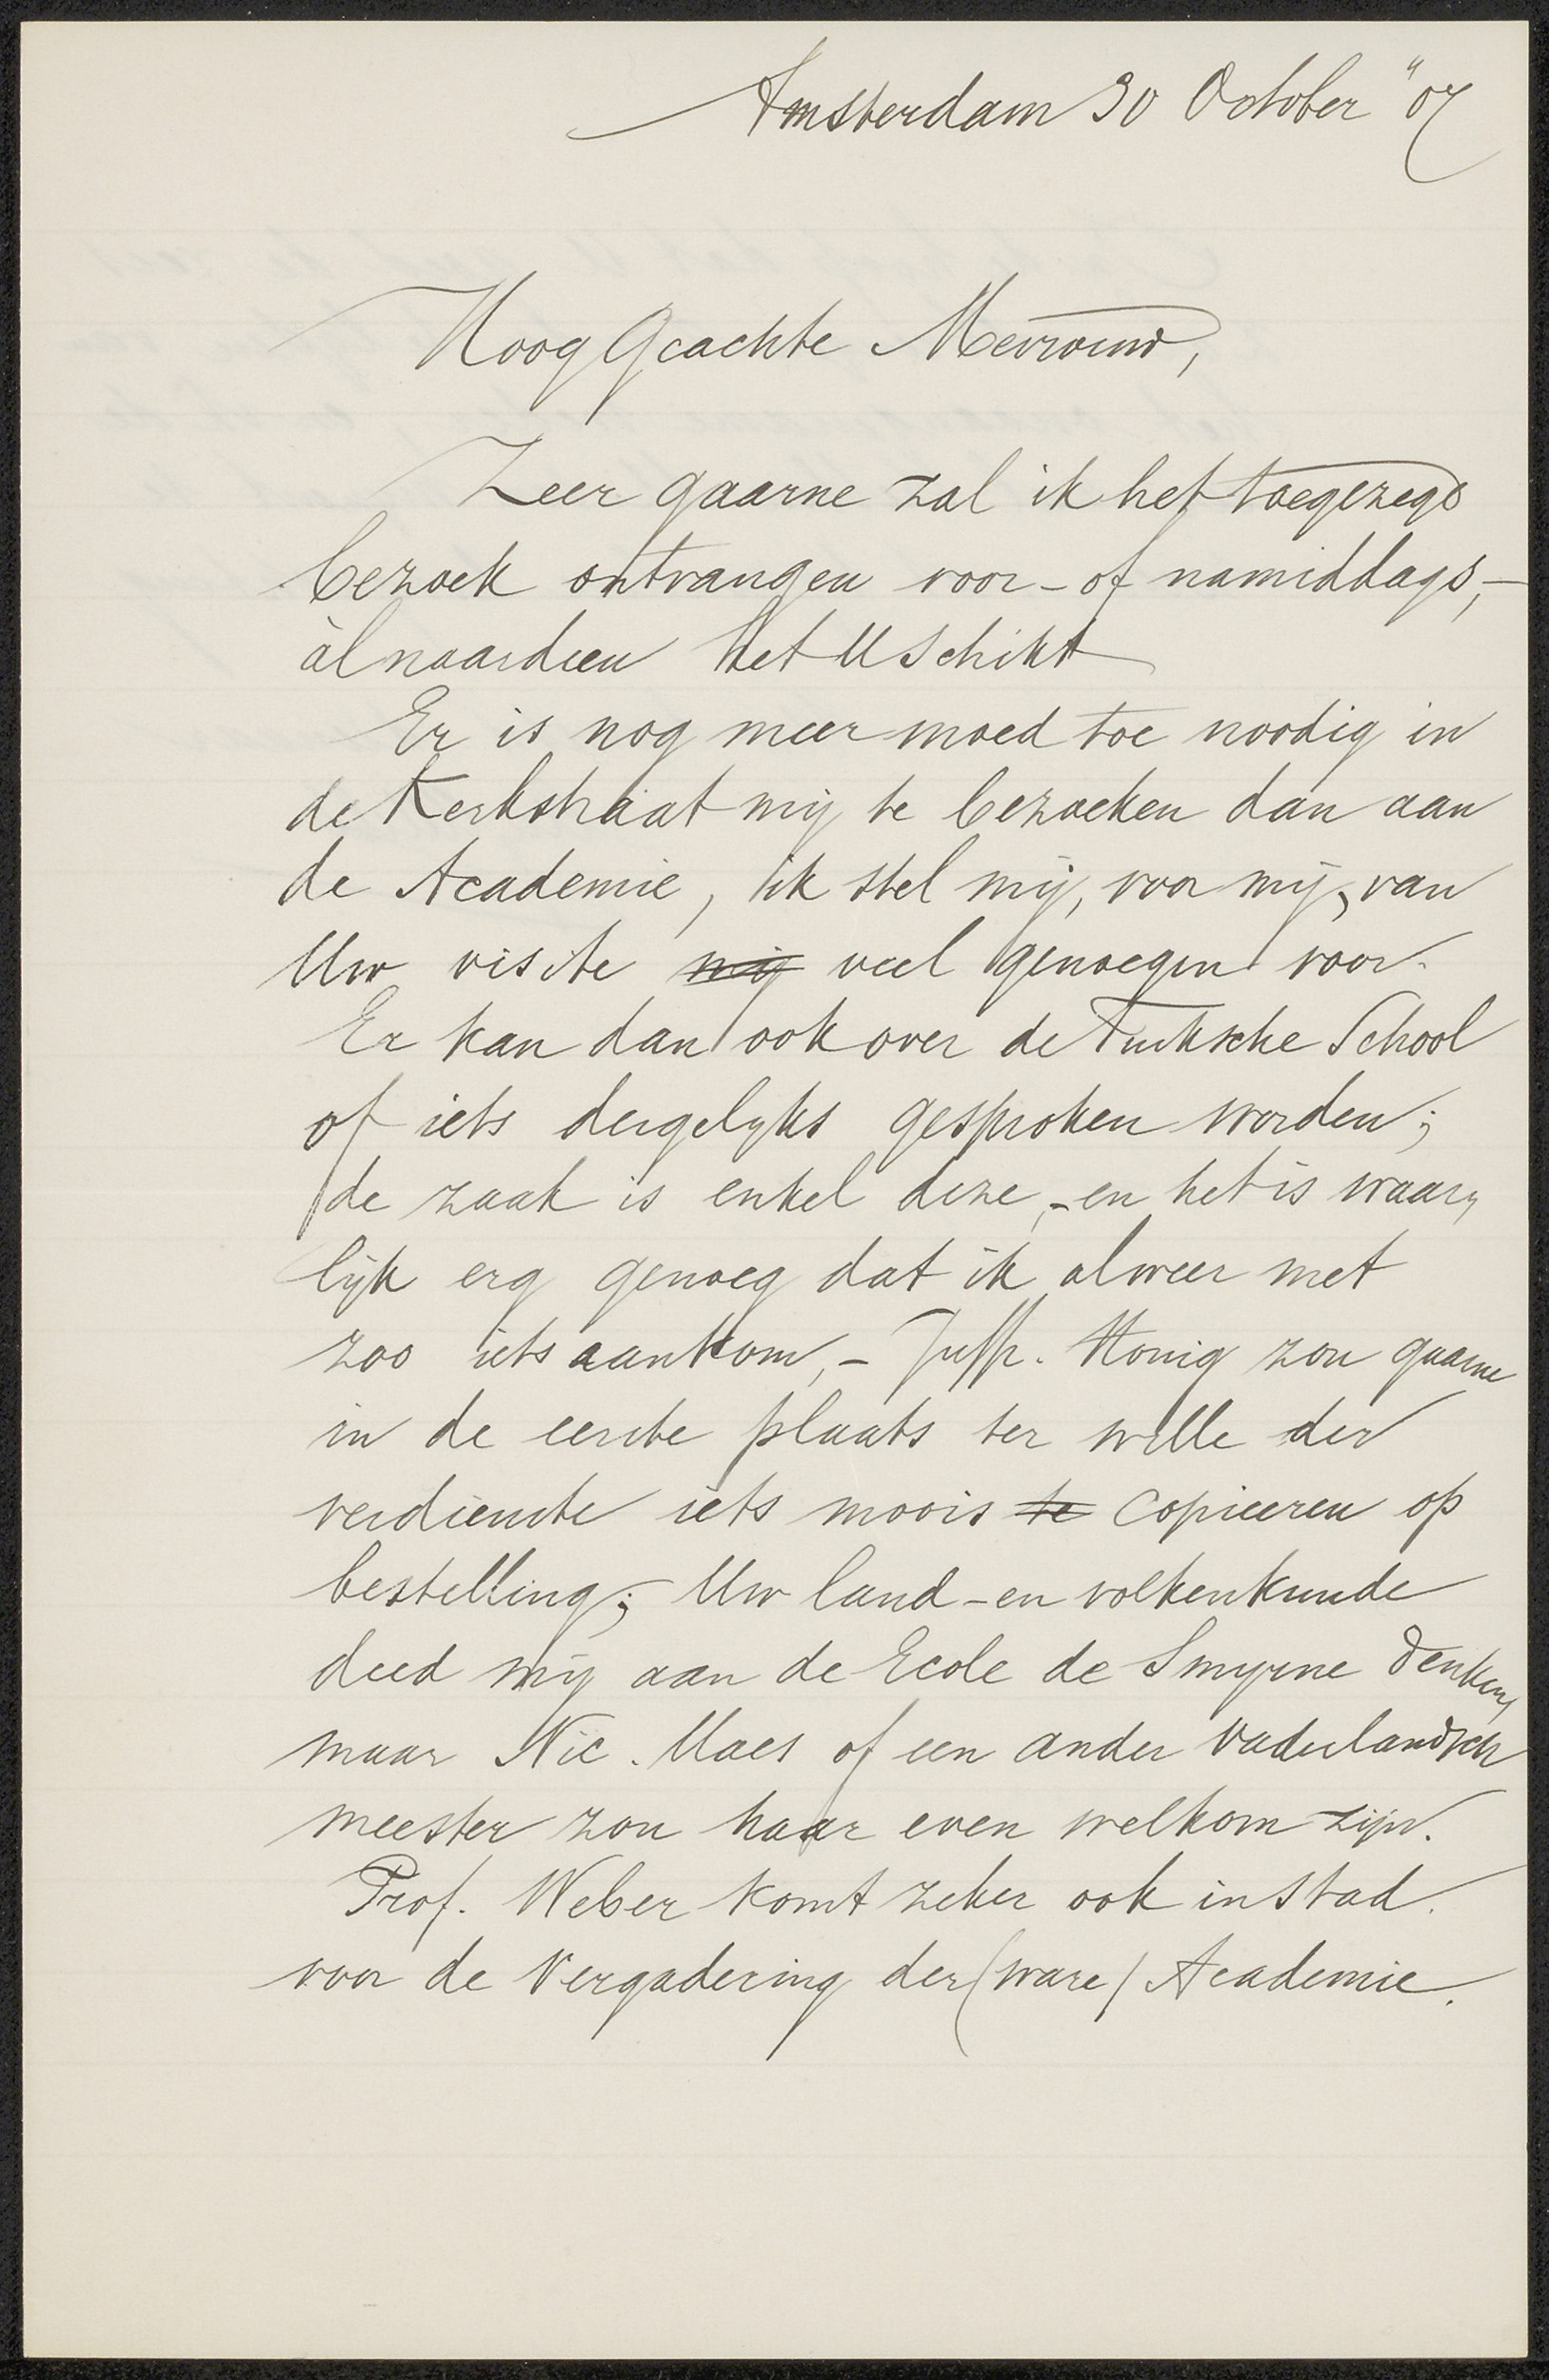 Amsterdam 30 October "07
Hoog Geachte Mevrouw,
Zeer gaarne zal ik het toegezegd
bezoek ontvangen voor- of namiddags,-
àl naardien het U schikt
Er is nog meer moed toe noodig in
de Kerkstraat mij te bezoeken dan aan
de Academie, ik stel mij, voor mij, van
Uw visite mij veel genoegen voor.
Er kan dan ook over de Turksche School
of iets dergelijks gesproken worden;
de zaak is enkel deze,- en het is waar,
lijk erg genoeg dat ik alweer met
zoo iets aankom,- Juffr. Honig zou gaarne
in de eerste plaats ter wille der
verdienste iets moois te copieeren op
bestelling; Uw land-en volkenkunde
deed mij aan de Ecole de Smyrne denken,
maar Nic. Maes of een ander vaderlandsch
meester zou haar even welkom zijn.
Prof. Weber komt zeker ook in stad
voor de Vergadering der (ware) Academie.